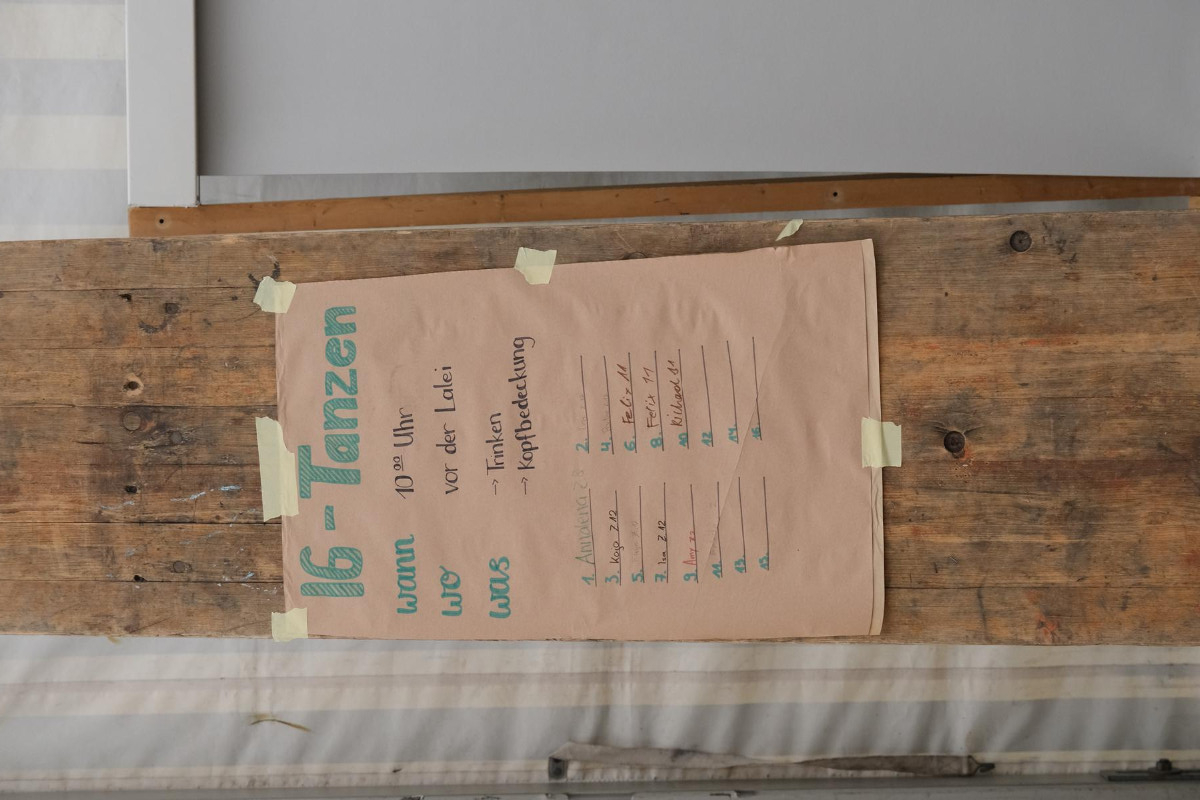 16 - Tanzen
wann 10⁰⁰ Uhr
wo vor der Lalei
was → Trinken
→ Kopfbedeckung
1. 2.
3. Kajo Z12 4.
5. 6. Felix 11
7. Z12 8. Felix 11
9. Amy 10. Richard 11
11. 12.
13. 14.
15. 16.